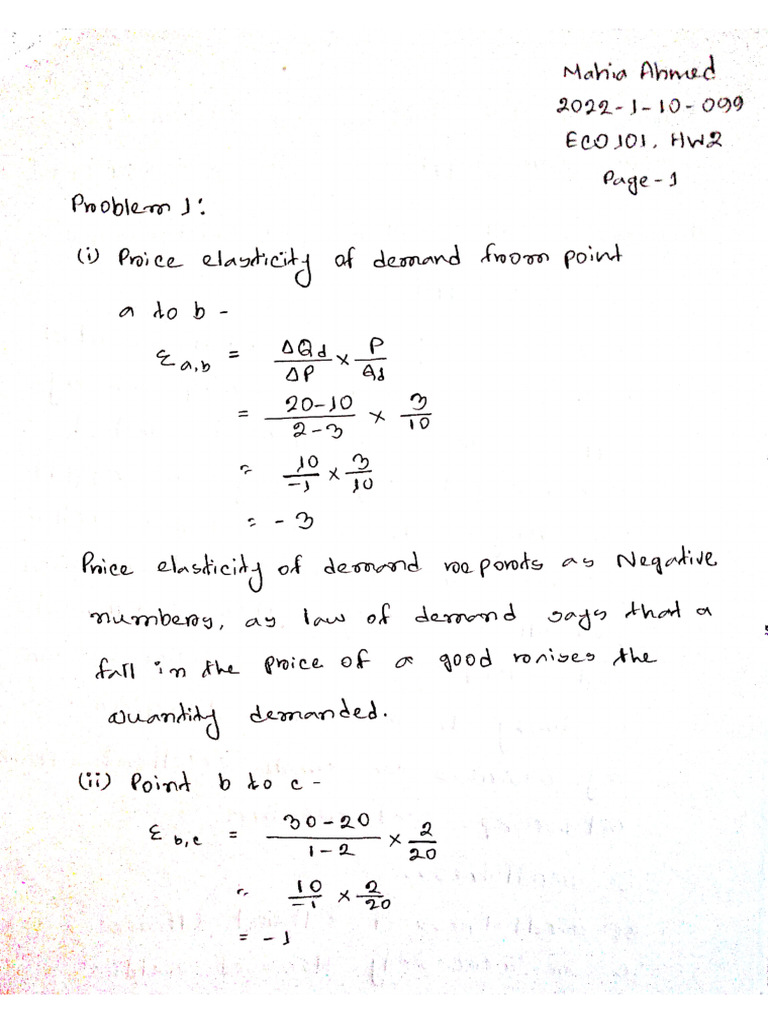 Mahia Ahmed
2022-1-10-099
ECO101, HW2
Page-1
Problem 1:
(i) Price elasticity of demand from point
a to b -
ε a,b = ΔQd/ΔP × P/Qd
= 20-10/2-3 × 3/10
= 10/-1 × 3/10
= -3
Price elasticity of demand reports as Negative
numbers, as law of demand says that a
fall in the price of a good raises the
quantity demanded.
(ii) Point b to c -
ε b,c = 30-20/1-2 × 2/20
= 10/-1 × 2/20
= -1